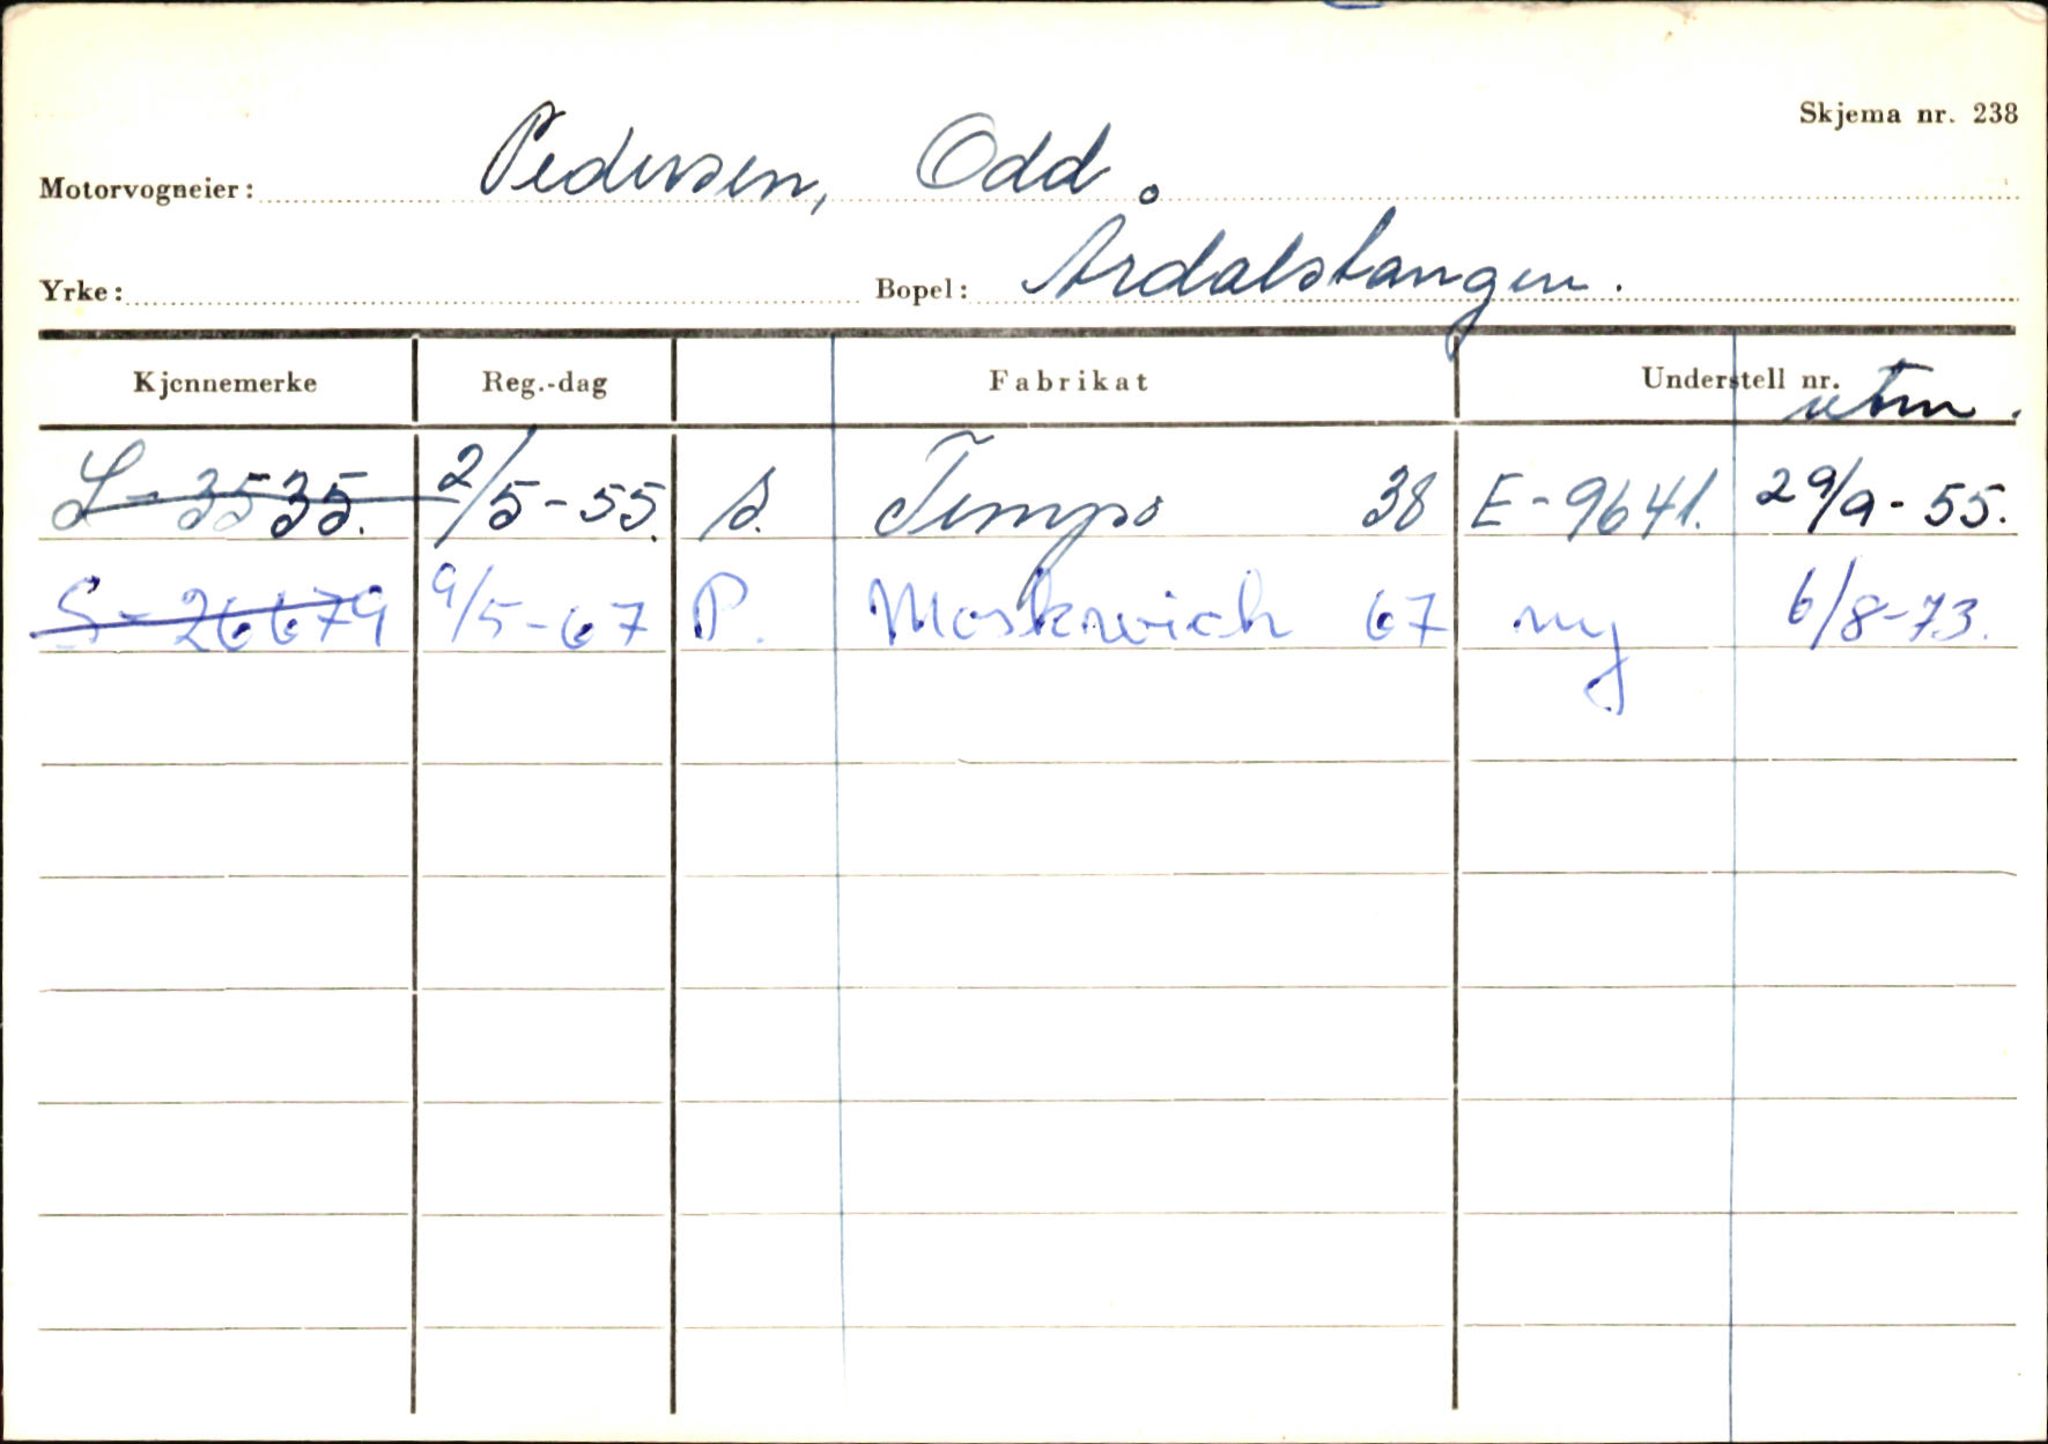 Skjema nr. 238
Motorvogneier: Pedersen, Odd.
Yrke: Bopel: Årdalstangen.
Kjennemerke Reg.-dag Fabrikat Understell nr. utm.
S-3535. 2/5-55. s. Tempo 38 E-9641. 29/9-55.
S-26679 9/5-67 P. Moskwich 67 ny 6/8-73.